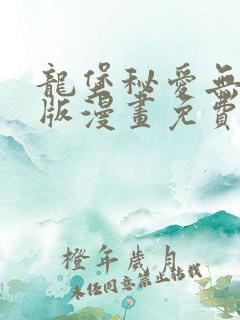 龍堡秘愛無
版漫畫免費
橙年歲月
未經同意禁止轉載